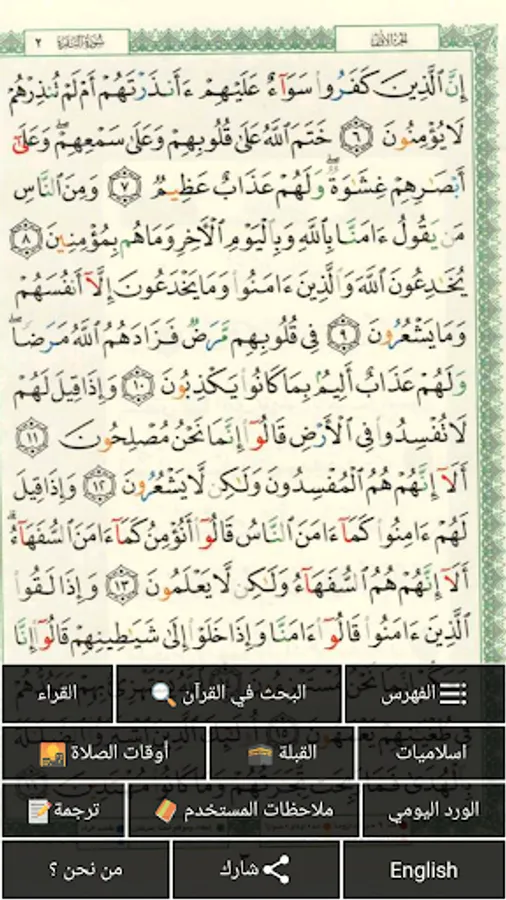 الجزء الأول
سُورَةُ البَقَرَة ٢
إِنَّ ٱلَّذِينَ كَفَرُوا۟ سَوَآءٌ عَلَيْهِمْ ءَأَنذَرْتَهُمْ أَمْ لَمْ تُنذِرْهُمْ
لَا يُؤْمِنُونَ ٦ خَتَمَ ٱللَّهُ عَلَىٰ قُلُوبِهِمْ وَعَلَىٰ سَمْعِهِمْ ۖ وَعَلَىٰٓ
أَبْصَـٰرِهِمْ غِشَـٰوَةٌ ۖ وَلَهُمْ عَذَابٌ عَظِيمٌ ٧ وَمِنَ ٱلنَّاسِ
مَن يَقُولُ ءَامَنَّا بِٱللَّهِ وَبِٱلْيَوْمِ ٱلْـَٔاخِرِ وَمَا هُم بِمُؤْمِنِينَ ٨
يُخَـٰدِعُونَ ٱللَّهَ وَٱلَّذِينَ ءَامَنُوا۟ وَمَا يَخْدَعُونَ إِلَّآ أَنفُسَهُمْ
وَمَا يَشْعُرُونَ ٩ فِى قُلُوبِهِم مَّرَضٌ فَزَادَهُمُ ٱللَّهُ مَرَضًا ۖ
وَلَهُمْ عَذَابٌ أَلِيمٌۢ بِمَا كَانُوا۟ يَكْذِبُونَ ١٠ وَإِذَا قِيلَ لَهُمْ
لَا تُفْسِدُوا۟ فِى ٱلْأَرْضِ قَالُوٓا۟ إِنَّمَا نَحْنُ مُصْلِحُونَ ١١
أَلَآ إِنَّهُمْ هُمُ ٱلْمُفْسِدُونَ وَلَـٰكِن لَّا يَشْعُرُونَ ١٢ وَإِذَا قِيلَ
لَهُمْ ءَامِنُوا۟ كَمَآ ءَامَنَ ٱلنَّاسُ قَالُوٓا۟ أَنُؤْمِنُ كَمَآ ءَامَنَ ٱلسُّفَهَآءُ ۗ
أَلَآ إِنَّهُمْ هُمُ ٱلسُّفَهَآءُ وَلَـٰكِن لَّا يَعْلَمُونَ ١٣ وَإِذَا لَقُوا۟
ٱلَّذِينَ ءَامَنُوا۟ قَالُوٓا۟ ءَامَنَّا وَإِذَا خَلَوْا۟ إِلَىٰ شَيَـٰطِينِهِمْ قَالُوٓا۟ إِنَّا
الفهرس البحث في القرآن القراء
اسلاميات القبلة أوقات الصلاة
الورد اليومي ملاحظات المستخدم ترجمة
English شارك من نحن ؟